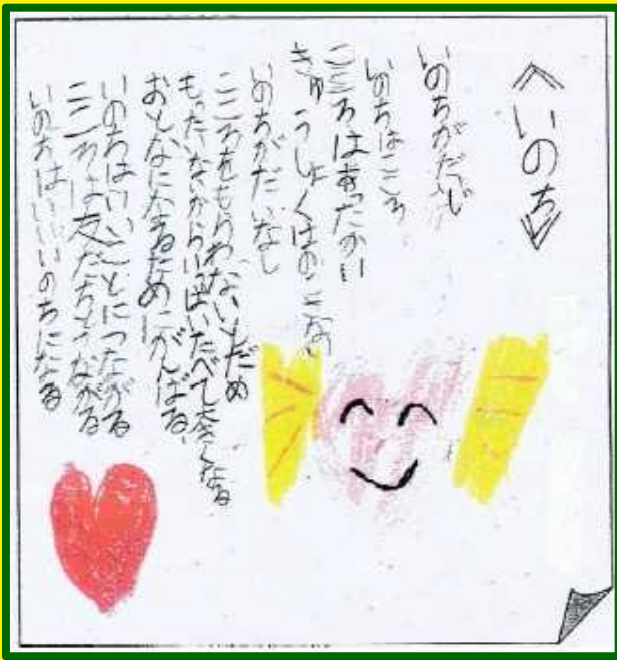 ≪いのち≫
いのちがだいじ
いのちはこころ
こころはあったかい
きゅうしょくはのこさない
いのちがだいなし
こころをもらわないとだめ
もったいないからいっぱいたべて大きくなる
おとなになるためにがんばる、
いのちはいいことにつながる
こころは友だちとつながる
いのちはいいいのちになる